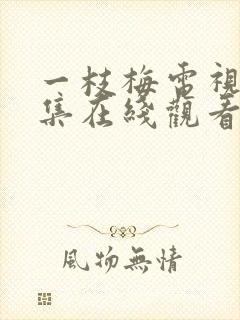 一枝梅電視
集在綫觀看
風物無情